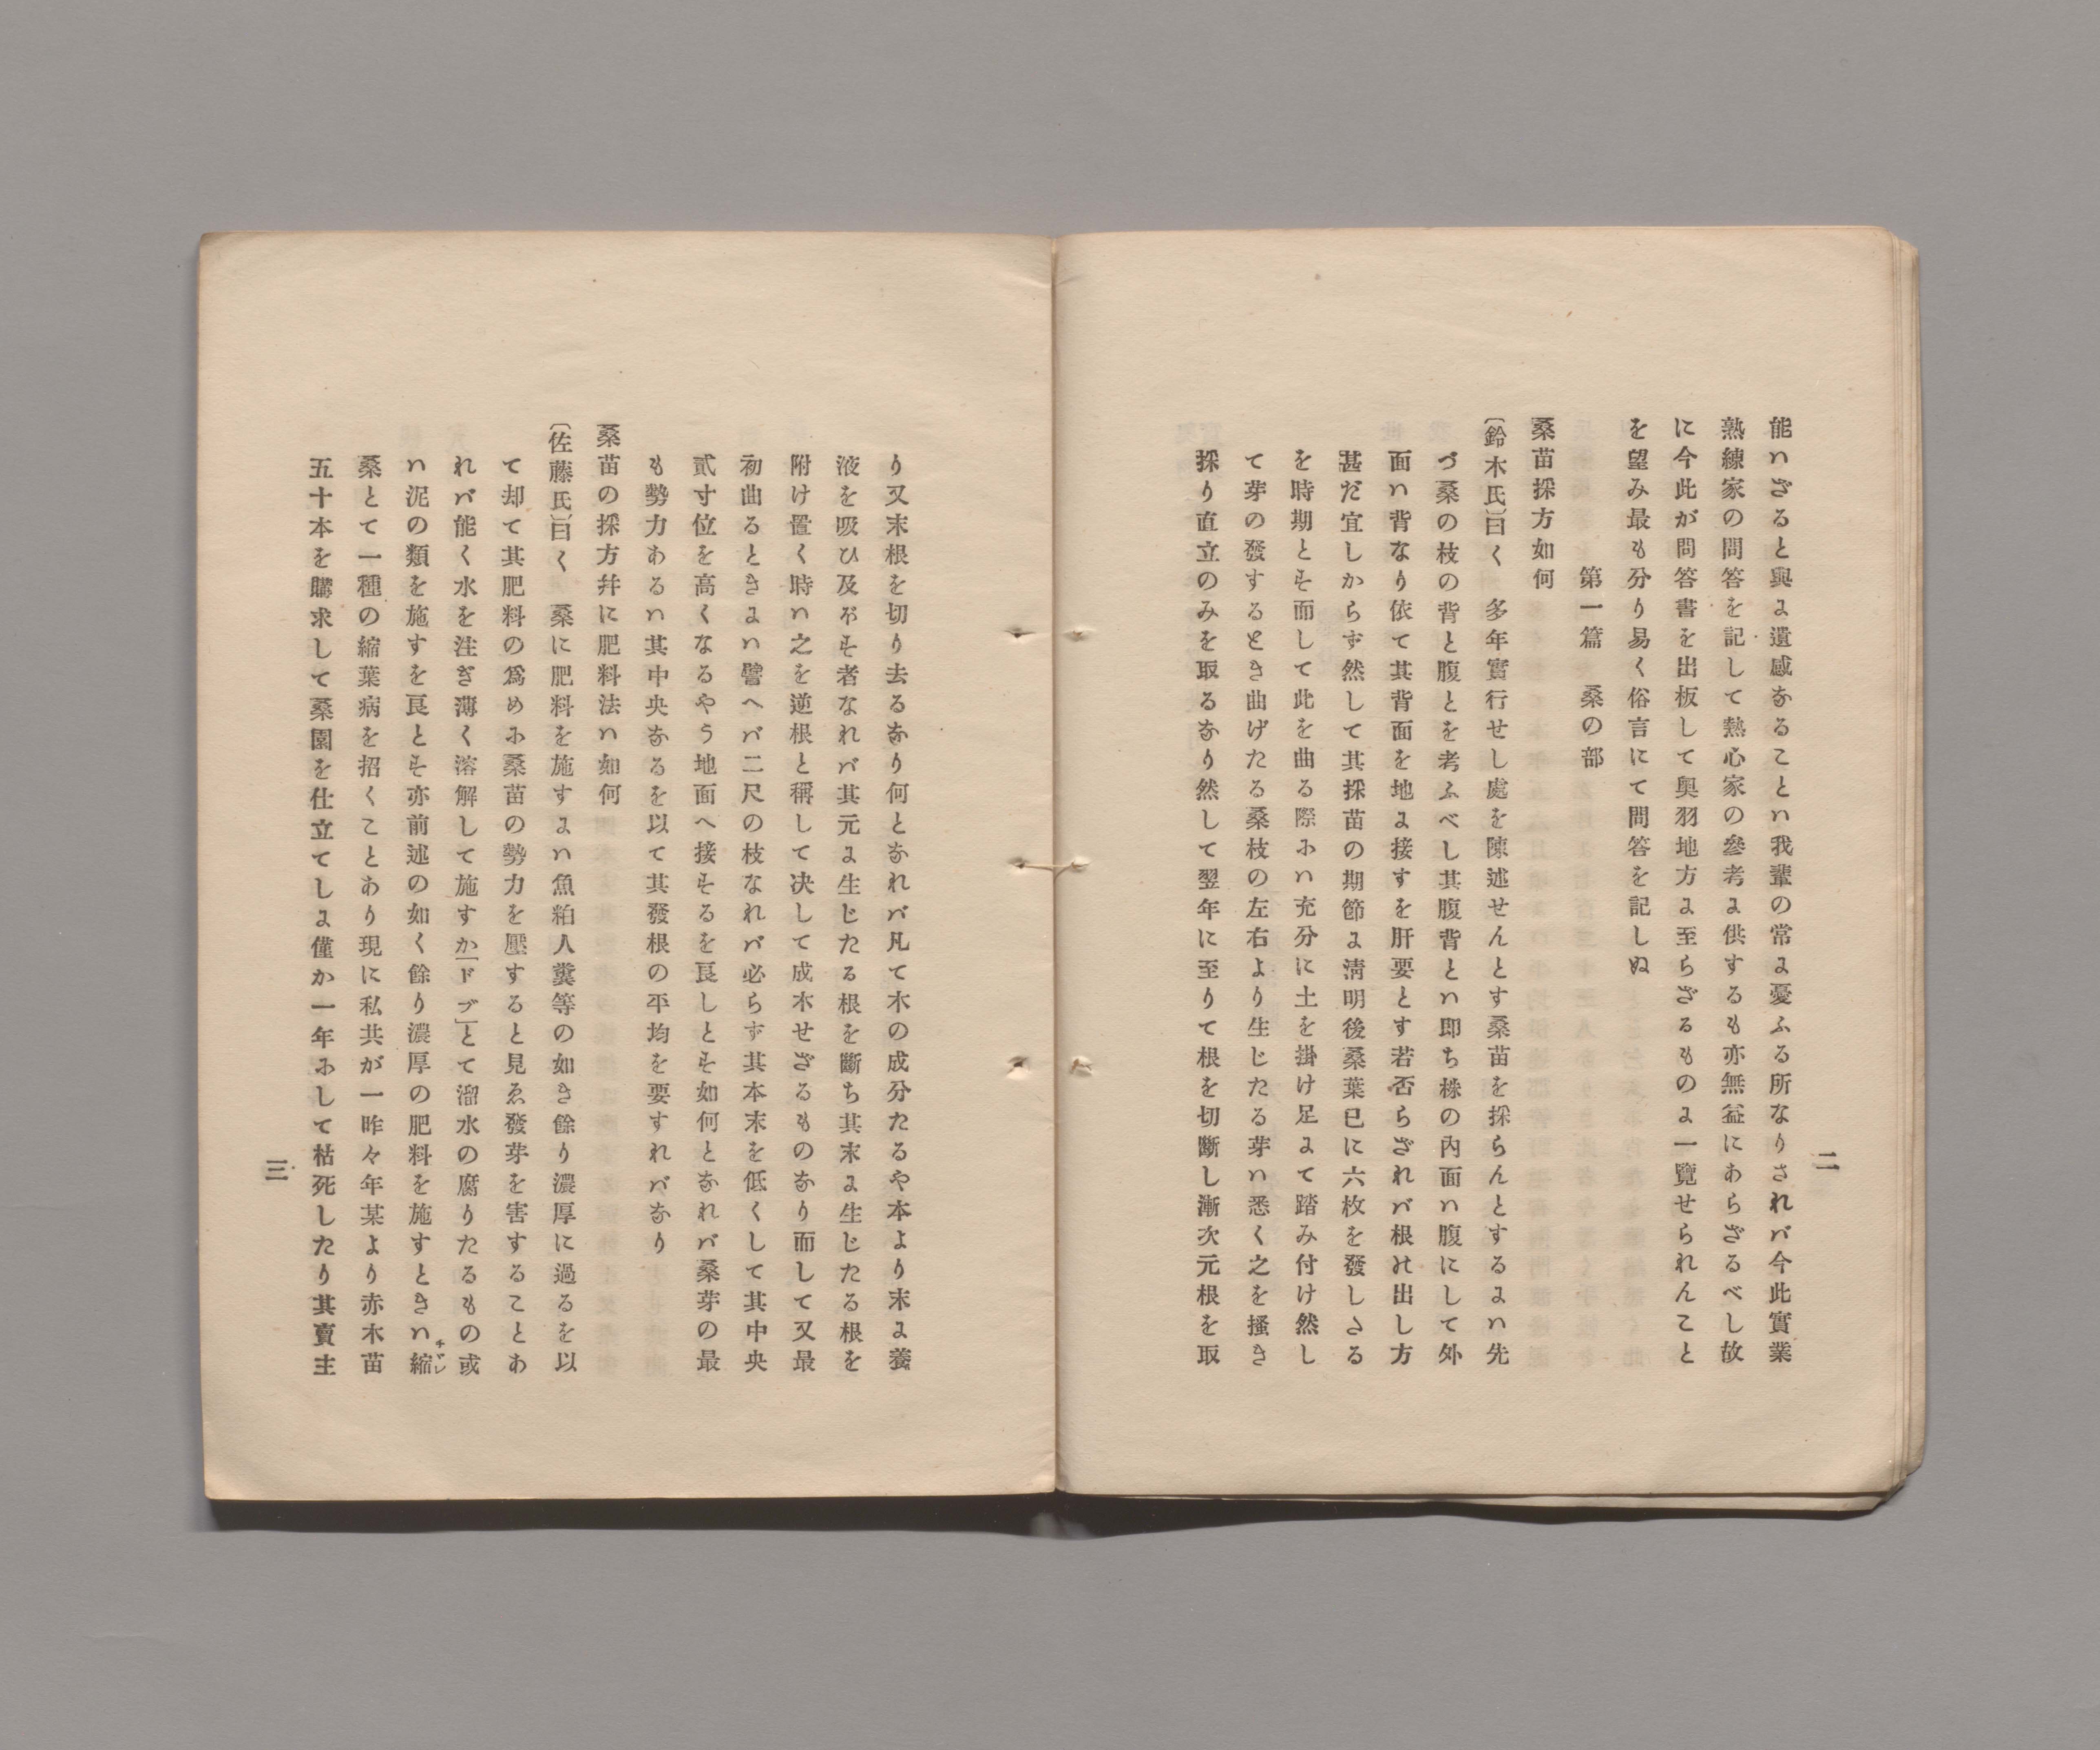 二
能ハざると與に遺感なることハ我輩の常に憂ふる所なりされバ今此實業
熟練家の問答を記して熱心家の參考に供するも亦無益にあらざるべし故
に今此が問答書を出板して奥羽地方に至らざるものに一覽せられんこと
を望み最も分り易く俗言にて問答を記しぬ
第一篇　桑の部
桑苗採方如何
〔鈴木氏〕曰く　多年實行せし處を陳述せんとす桑苗を採らんとするにハ先
づ桑の枝の背と腹とを考ふべし其腹背とハ即ち樣の内面ハ腹にして外
面ハ背なり依て其背面を地に接すを肝要とす若否らざれバ根の出し方
甚だ宜しからず然して其採苗の期節に淸明後桑葉已に六枚を發しさる
を時期とす而して此を曲る際にハ充分に土を掛け足にて踏み付け然し
て芽の發するとき曲げたる桑枝の左右より生じたる芽ハ悉く之を搔き
採り直立のみを取るなり然して翌年に至りて根を切斷し漸次元根を取
り又末根を切り去るなり何となれバ凡て木の成分たるや本より末に養
液を吸ひ及ぼす者なれバ其元に生じたる根を斷ち其末に生じたる根を
附け置く時ハ之を逆根と稱して决して成木せざるものなり而して又最
初曲るときにハ譬へバ二尺の枝なれバ必らず其本末を低くして其中央
貳寸位を高くなるやう地面へ接するを良しとす如何となれバ桑芽の最
も勢力あるハ其中央なるを以て其發根の平均を要すれバなり
桑苗の採方幷に肥料法ハ如何
〔佐藤氏〕曰く　桑に肥料を施すにハ魚粕人糞等の如き餘り濃厚に過るを以
て却て其肥料の爲めに桑苗の勢力を壓すると見ゑ發芽を害することあ
れバ能く水を注ぎ薄く溶解して施すか「ドブ」とて溜水の腐りたるもの或
ハ泥の類を施すを良とす亦前述の如く餘り濃厚の肥料を施すときハ縮
桑とて一種の縮葉病を招くことあり現に私共が一昨々年某より赤木苗
五十本を購求して桑園を仕立てしに僅か一年にして枯死したり其賣主
三